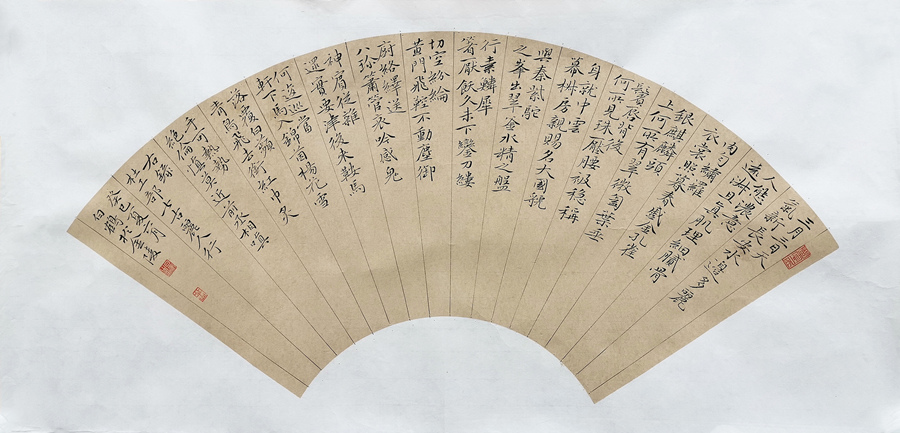 三月三日天
氣新長安水邊多麗
人態濃意
遠淑且真肌理細膩骨
肉勻繡羅
衣裳照暮春蹙金孔雀
銀麒麟頭
上何所有翠微㔩葉垂
鬢唇背後
何所見珠壓腰衱穩稱
身就中雲
幕椒房親賜名大國虢
與秦紫駝
之峯出翠釜水精之盤
行素鱗犀
箸厭飫久未下鸞刀縷
切空紛綸
黃門飛鞚不動塵御
廚絡繹送
八珍簫管哀吟感鬼
神賓從雜
遝實要津後來鞍馬
何逡巡當
軒下馬入錦茵楊花雪
落覆白蘋
青鳥飛去銜紅巾炙
手可熱勢
絕倫慎莫近前丞相嗔
右錄
杜工部七古麗人行
癸巳夏六月
白鶴於金陵